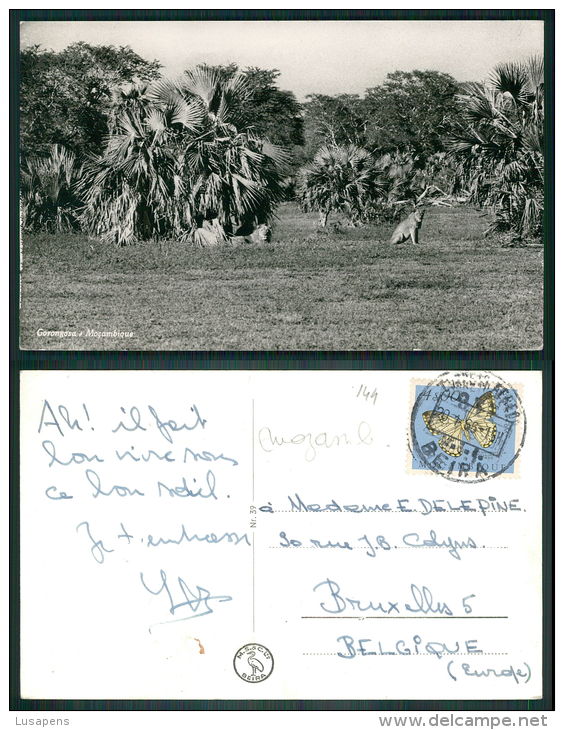 Gorongosa • Moçambique
Ah! il fait
bon vivre sous
ce bon soleil.
Je t'embrasse
Nr. 39
M.S. & C.º
BEIRA
144
mozamb.
4$00
MOÇAMBIQUE
BEIRA
à Madame E. DELEPINE.
30 rue J.B. Colyns.
Bruxelles 5
BELGIQUE
(Europe)
Lusapens
©delcampe.net